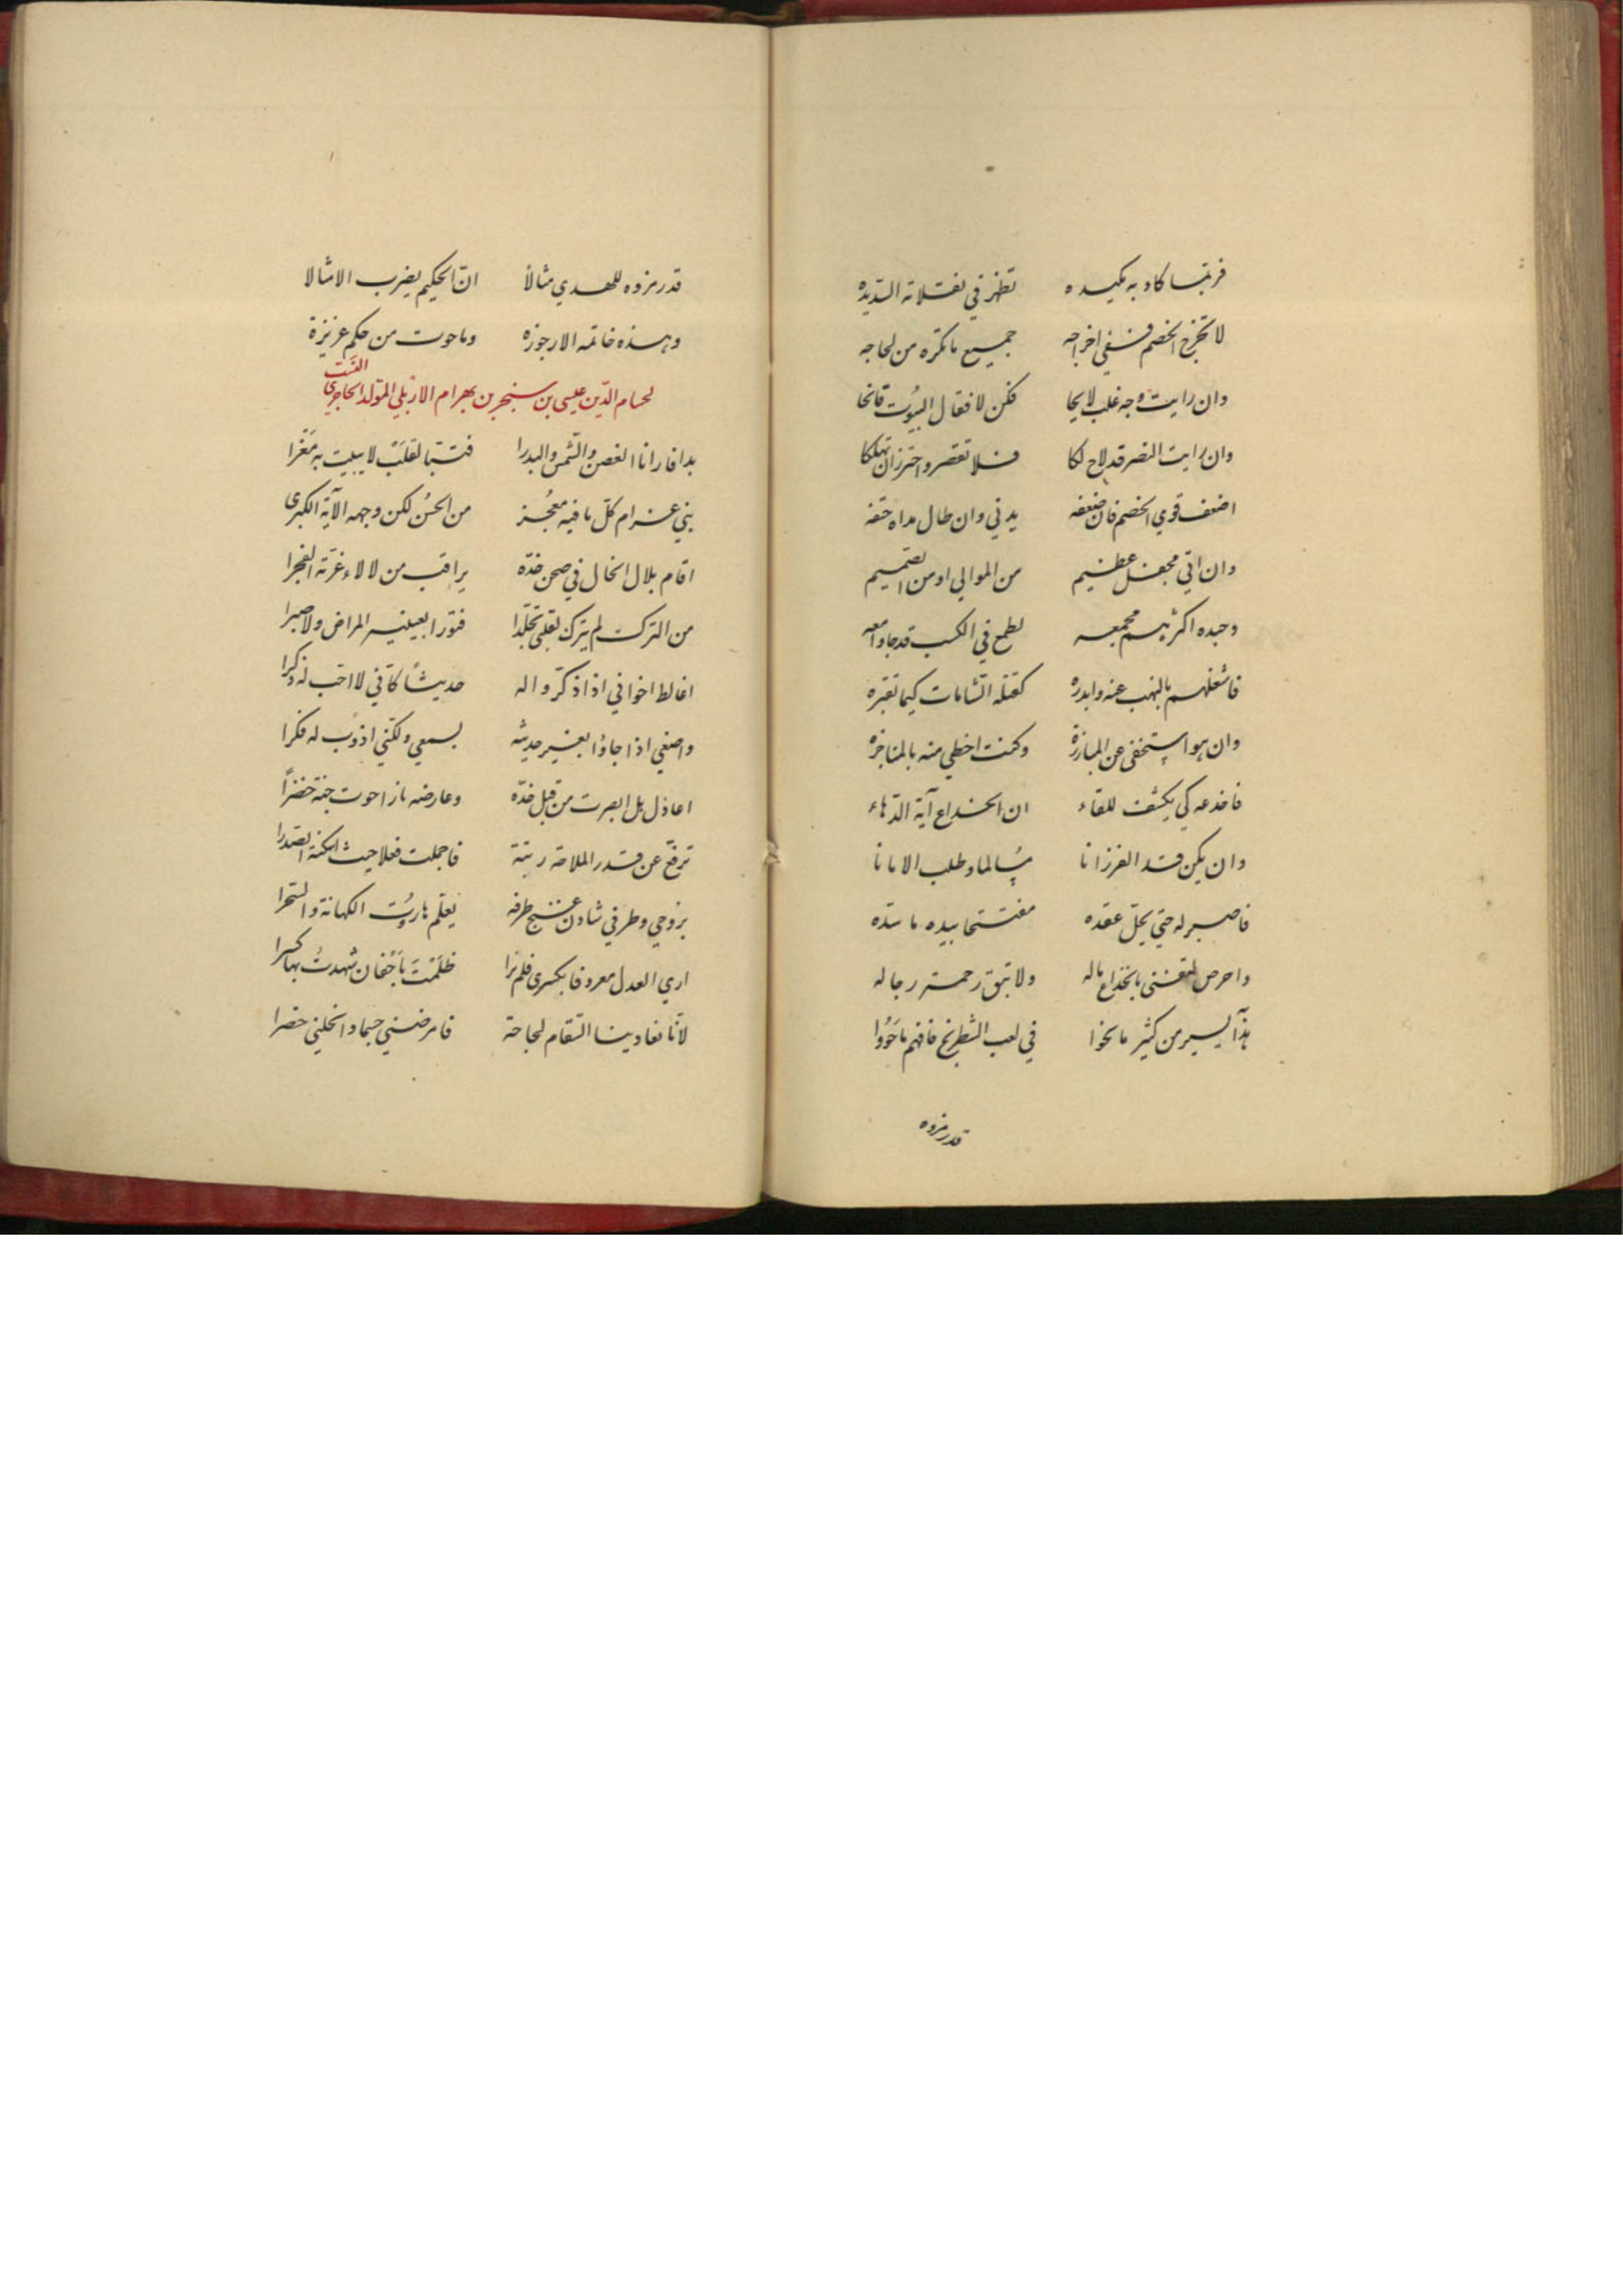 فربما كاد به مكيده تظهر في نقلاته السديده
لا تحرج الخصم ففي احراجه جميع ما تكره من لجاجه
وان رايت وجه غلب لايحا فكن لاقفال البيوت فاتحا
وان رايت النصر قد لاح لكا فلا تقصر واحترز ان تهلكا
اضعف قوي الخصم فان ضعفه يدني وان طال مداه حتفه
وان اتي بجحفل عظيم من الموالي او من الصميم
وجنده اكثرهم مجمعه لطمع في الكسب قد جاوا معه
فاشغلهم بالنهب عنه وابدره كقتله الشامات كيما تقبره
وان هو استخفى عن المبارزة وكنت احظي منه بالمناجزه
فاخدعه كي يكشف للقاء ان الخداع آية الدهاء
وان يكن قد الفرزانا مسالما وطلب الامانا
فاصبر له حتي يحل عقده مفتتحا بيده ما سده
واحرص لتفني بالخداع ماله ولا تبق رحمة رجاله
هذا يسير من كثير ما نحوا في لعب الشطرنج فافهم ما حووا
قد رمزوه
قد رمزوه للهدي مثالا ان الحكيم يضرب الامثالا
وهذه خاتمه الارجوزه وما حوت من حكم عزيزة
لحسام الدين عيسى بن سنجر بن بهرام الاربلي المولد الحاجري
بدا فارانا الغصن والشمس والبدرا فتبا لقلب لا يبيت به مغرا
نبي غرام كل ما فيه معجز من الحسن لكن وجهه الآية الكبرى
اقام بلال الخال في صحن خده يراقب من لالاء غرته الفجرا
من الترك لم يترك بقلبي تجلدا فتور بعينيه المراض ولا صبرا
اغالط اخواني اذا ذكروا له حديثا كاني لا احب له ذكرا
واصغي اذا جاؤا بغير حديثه بسمعي ولكني اذوب له فكرا
اعاذل هل ابصرت من قبل خده وعارضه نارا حوت جنة خضرا
ترفع عن قدر الملاحة رتبة فاجملت فعلا حيث اسكنته الصدرا
بروحي وطرفي شادن غنج طرفه يعلم هاروت الكهانة والسحرا
اري العدل معروفا بكسرى فلم نرا ظلمت باجفان شهدت بها كسرا
لانا تعادينا السقام لجاجة فامرضني جسما وانحلني خصرا